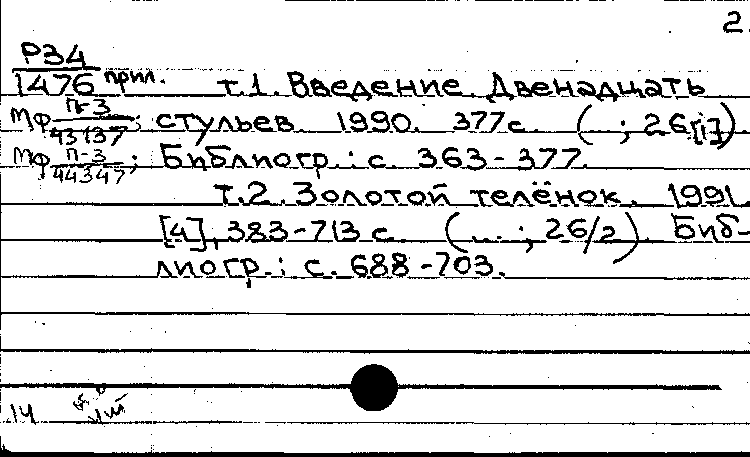 2.
Р34
1476 прил. т.1. Введение. Двенадцать
Мф П-3/43137; стульев. 1990. 377с. (...; 26[1])
Мф П-3/44347; Библиогр.: с. 363-377.
Т.2. Золотой телёнок. 1991.
[4], 383-713 с. (...; 26/2). Биб-
лиогр.: с. 688-703.
14